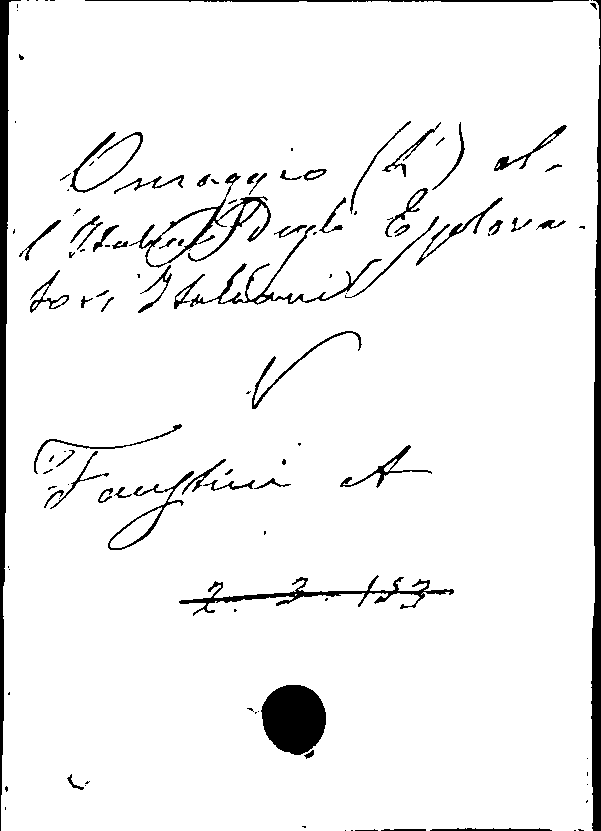 Omaggio (L') al-
l'Italia Degli Esplora-
tori Italiani
V
Faustini A
2. 3. 153